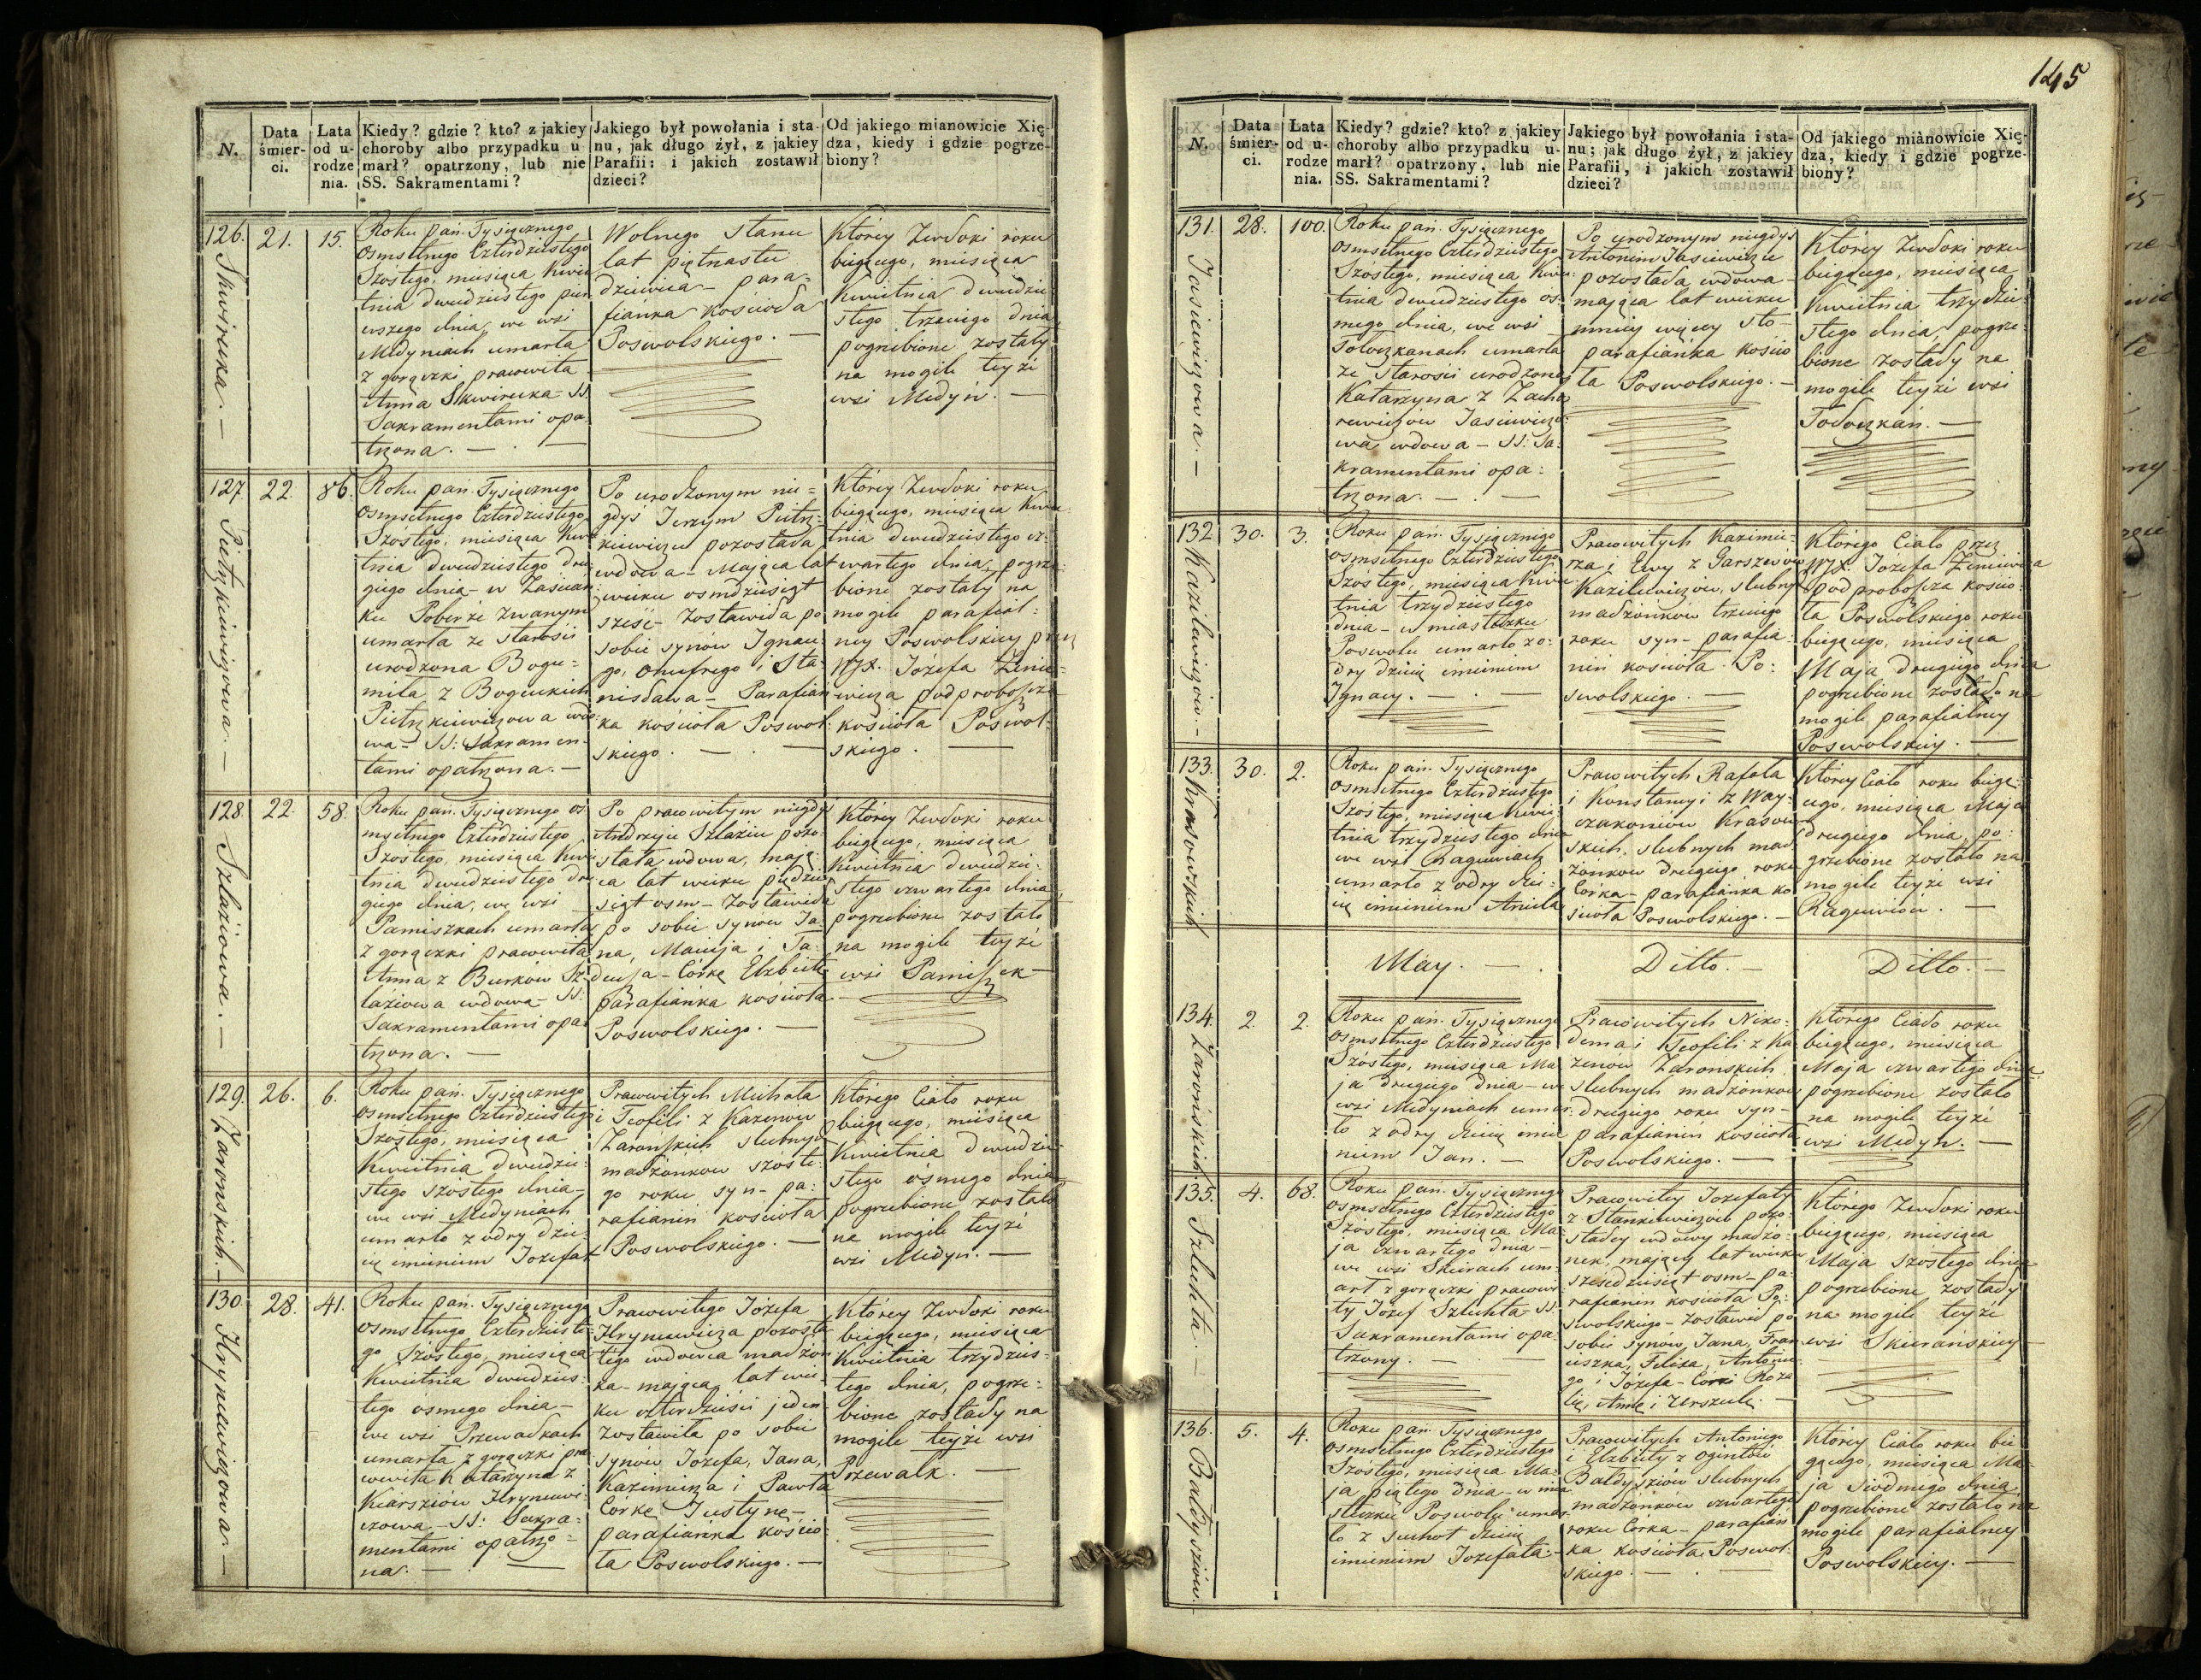 145
N.
Data śmier-ci.
Lata od u-rodze nia.
Kiedy? gdzie? kto? z jakiey
choroby albo przypadku u
marł? opatrzony, lub nie
SS. Sakramentami?
Jakiego był powołania i sta-
nu, jak długo żył, z jakiey
Parafii: i jakich zostawił
dzieci?
Od jakiego mianowicie Xię-
dza, kiedy i gdzie pogrze-
biony?
126.
Skwirecka. —
21.
15.
Roku pań. Tysiącznego
osmsetnego Czterdziestego
Szóstego, miesiąca Kwie
tnia dwudziestego pier
wszego dnia, we wsi
Medyniach umarła
z gorączki prawowita
Anna Skwirecka – SS.
Sakramentami opa
trzona. —
Wolnego stanu
lat piętnastu
dziewica – para-
fianka kościoła
Poswolskiego. —
Którey Zwłoki roku
bieżącego, miesiąca
Kwietnia dwudzie-
stego trzeciego dnia
pogrzebione zostały
na mogile teyże
wsi Medyń. —
127.
Pietrzkiewiczowa. —
22.
86.
Roku pań. Tysiącznego
osmsetnego Czterdziestego
Szóstego, miesiąca Kwie
tnia dwudziestego dru
giego dnia – w Zaścian
ku Poberże zwanym
umarła ze starości
urodzona Bogu-
miła z Boguckich
Pietrzkiewiczowa wdo-
wa – SS: Sakramen-
tami opatrzona. —
Po urodzonym nie-
gdyś Jerzym Pietrz-
kiewiczu pozostała
wdowa – Mająca lat
wieku osmdziesiąt
sześć – Zostawiła po
sobie synów Ignace-
go, Onufrego i Sta-
nisława – Parafian
ka kościoła Poswol-
skiego. —
Którey Zwłoki roku
bieżącego, miesiąca Kwie-
tnia dwudziestego cz-
wartego dnia, pogrze-
bione zostały na
mogile parafial-
ney Poswolskiey przez
WJX. Józefa Żenie-
wicza podproboszcza
kościoła Poswol-
skiego. —
128.
Szlaziowa. —
22.
58.
Roku pań. Tysiącznego os
msetnego Czterdziestego
Szóstego, miesiąca Kwie
tnia dwudziestego dru
giego dnia, we wsi
Pamiszkach umarła
z gorączki prawowita
Anna z Burków Sz-
laziowa wdowa – SS:
Sakramentami opa-
trzona. —
Po prawowitym niegdyś
Andrzeju Szlaziu pozo
stała wdowa, mają-
ca lat wieku pięćdzie
siąt osm – Zostawiła
po sobie synów Ja-
na, Macieja i Ta-
deusza – Córkę Elzbietę
parafianka kościoła
Poswolskiego. —
Którey Zwłoki roku
bieżącego, miesiąca
Kwietnia dwudzie-
stego czwartego dnia
pogrzebione zostało
na mogile teyże
wsi Pamiszek —
129.
Zaronskich. —
26.
6.
Roku pań. Tysiącznego
osmsetnego Czterdziestego
Szóstego, miesiąca
Kwietnia dwudzie-
stego szóstego dnia –
we wsi Medyniach
umarło z odry dzie-
cię imieniem Jozefat
Prawowitych Michała
i Teofili z Kazenow
Zaronskich slubnych
małżonkow szóste-
go roku syn – pa-
rafianin kościoła
Poswolskiego. —
Którego Ciało roku
bieżącego, miesiąca
Kwietnia dwudzie-
stego ósmego dnia
pogrzebione zostało
na mogile teyże
wsi Medyn. —
130.
Hryncewiczowa. —
28.
41.
Roku pań. Tysiącznego
osmsetnego Czterdzieste-
go Szóstego, miesiąca
Kwietnia dwudzies-
tego osmego dnia –
we wsi Przewałkach
umarła z gorączki pra
wowita Katarzyna z
Kiarsziów Hryncewi-
czowa – SS: Sakra-
mentami opatrzo-
na. —
Prawowitego Józefa
Hryncewicza pozosta
łego wdowca małżon
ka – mająca lat wie-
ku czterdzieści jeden
Zostawiła po sobie
synów Jozefa, Jana,
Kazimierza i Pawła
Córkę Justynę –
parafianka kościo-
ła Poswolskiego. —
Którey Zwłoki roku
bieżącego, miesiąca
Kwietnia trzydzies-
tego dnia, pogrze-
bione zostały na
mogile teyże wsi
Przewałk. —
N.
Data śmier-ci.
Lata od u-rodze nia.
Kiedy? gdzie? kto? z jakiey
choroby albo przypadku u-
marł? opatrzony, lub nie
SS. Sakramentami?
Jakiego był powołania i sta-
nu; jak długo żył, z jakiey
Parafii, i jakich zostawił
dzieci?
Od jakiego mianowicie Xię-
dza, kiedy i gdzie pogrze-
biony?
131.
Jasiewiczowa. —
28.
100.
Roku pań. Tysiącznego
osmsetnego Czterdziestego
Szóstego, miesiąca Kwie-
tnia dwudziestego ós-
mego dnia, we wsi
Tołoczkanach umarła
ze starości urodzona
Katarzyna z Zacha
rewiczów Jasiewiczo-
wa, wdowa – SS: Sa-
kramentami opa-
trzona. —
Po urodzonym niegdyś
Antonim Jasiewiczu
pozostała wdowa –
mająca lat wieku
mniey więcey sto –
parafianka kościo
ła Poswolskiego. —
Którey Zwłoki roku
bieżącego, miesiąca
Kwietnia trzydzie-
stego dnia, pogrze-
bione zostały na
mogile teyże wsi
Tołoczkań. —
132.
Kazilewiczów. —
30.
3.
Roku pań. Tysiącznego
osmsetnego Czterdziestego
Szóstego, miesiąca Kwie-
tnia trzydziestego
dnia – w miasteczku
Poswolu umarło z o-
dry dziecię imieniem
Ignacy. —
Prawowitych Kazimie-
rza i Ewy z Garszwów
Kazilewiczów, slubnych
małżonków trzeciego
roku syn – parafia-
nin kościoła Po-
swolskiego. —
Którego Ciało przez
WJX. Jozefa Żeniewicza
podproboszcza kościo-
ła Poswolskiego roku
bieżącego, miesiąca
Maja drugiego dnia
pogrzebione zostało na
mogile parafialney
Poswolskiey. —
133.
Krasowskich
30.
2.
Roku pań. Tysiącznego
osmsetnego Czterdziestego
Szóstego, miesiąca Kwie-
tnia trzydziestego dnia
we wsi Raguwiach
umarło z odry dzie-
cię imieniem Aniela
Prawowitych Rafała
i Konstancyi z Way-
czakoniów Krasow-
skich, slubnych mał
żonkow drugiego roku
Córka – parafianka ko
ścioła Poswolskiego. —
Którey Ciało roku bieżą-
cego, miesiąca Maja
drugiego dnia po-
grzebione zostało na
mogile teyże wsi
Raguwiow. —
May. —
Ditto. —
Ditto. —
134.
Zarońskich.
2.
2.
Roku pań. Tysiącznego
osmsetnego Czterdziestego
Szóstego, miesiąca Ma
ja drugiego dnia – we
wsi Medyniach umar-
ło z odry dziecię imie
niem Jan. —
Prawowitych Niko-
dema i Teofili z Ka
zenów Zaronskich,
slubnych małżonkow
drugiego roku syn –
parafianin kościoła
Poswolskiego. —
Którego Ciało roku
bieżącego, miesiąca
Maja czwartego dnia
pogrzebione zostało
na mogile teyże
wsi Medyn. —
135.
Szlachta. —
4.
68.
Roku pań. Tysiącznego
osmsetnego Czterdziestego
Szóstego, miesiąca Ma-
ja czwartego dnia –
we wsi Skierach um-
arł z gorączki prawowi-
ty Jozef Szlachta – SS.
Sakramentami opa-
trzony. —
Prawowitey Jozefaty
z Stankiewiczów pozo-
stałey wdowy małżo-
nek, mający lat wieku
sześćdziesiąt osm – pa-
rafianin kościoła Po-
swolskiego – zostawił po
sobie synów Jana, Fran
ciszka, Felixa, Antonie-
go i Józefa – Corki Roza
lię, Annę i Urszulę. —
Którego Zwłoki roku
bieżącego, miesiąca
Maja szóstego dnia
pogrzebione zostały
na mogile teyże
wsi Skierańskiey
136.
Bałdysziów. —
5.
4.
Roku pań. Tysiącznego
osmsetnego Czterdziestego
Szóstego, miesiąca Ma-
ja piątego dnia – w mia
steczku Poswolu umar-
ło z suchot dziecię
imieniem Jozefata. —
Prawowitych Antoniego
i Elzbiety z Ogintów
Bałdysziów slubnych
małżonków czwartego
roku Córka – parafian
ka kościoła Poswol-
skiego. —
Którey Ciało roku bie
żącego, miesiąca Ma-
ja siódmego dnia,
pogrzebione zostało na
mogile parafialney
Poswolskiey. —